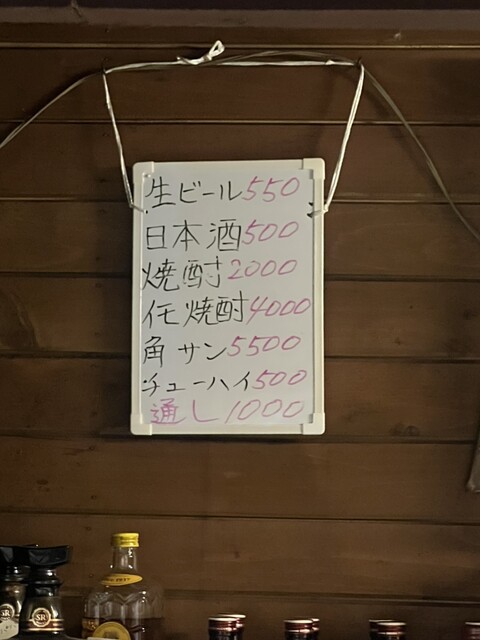 生ビール550
日本酒500
焼酎2000
イモ焼酎4000
角サン5500
チューハイ500
通し1000
SR
SR